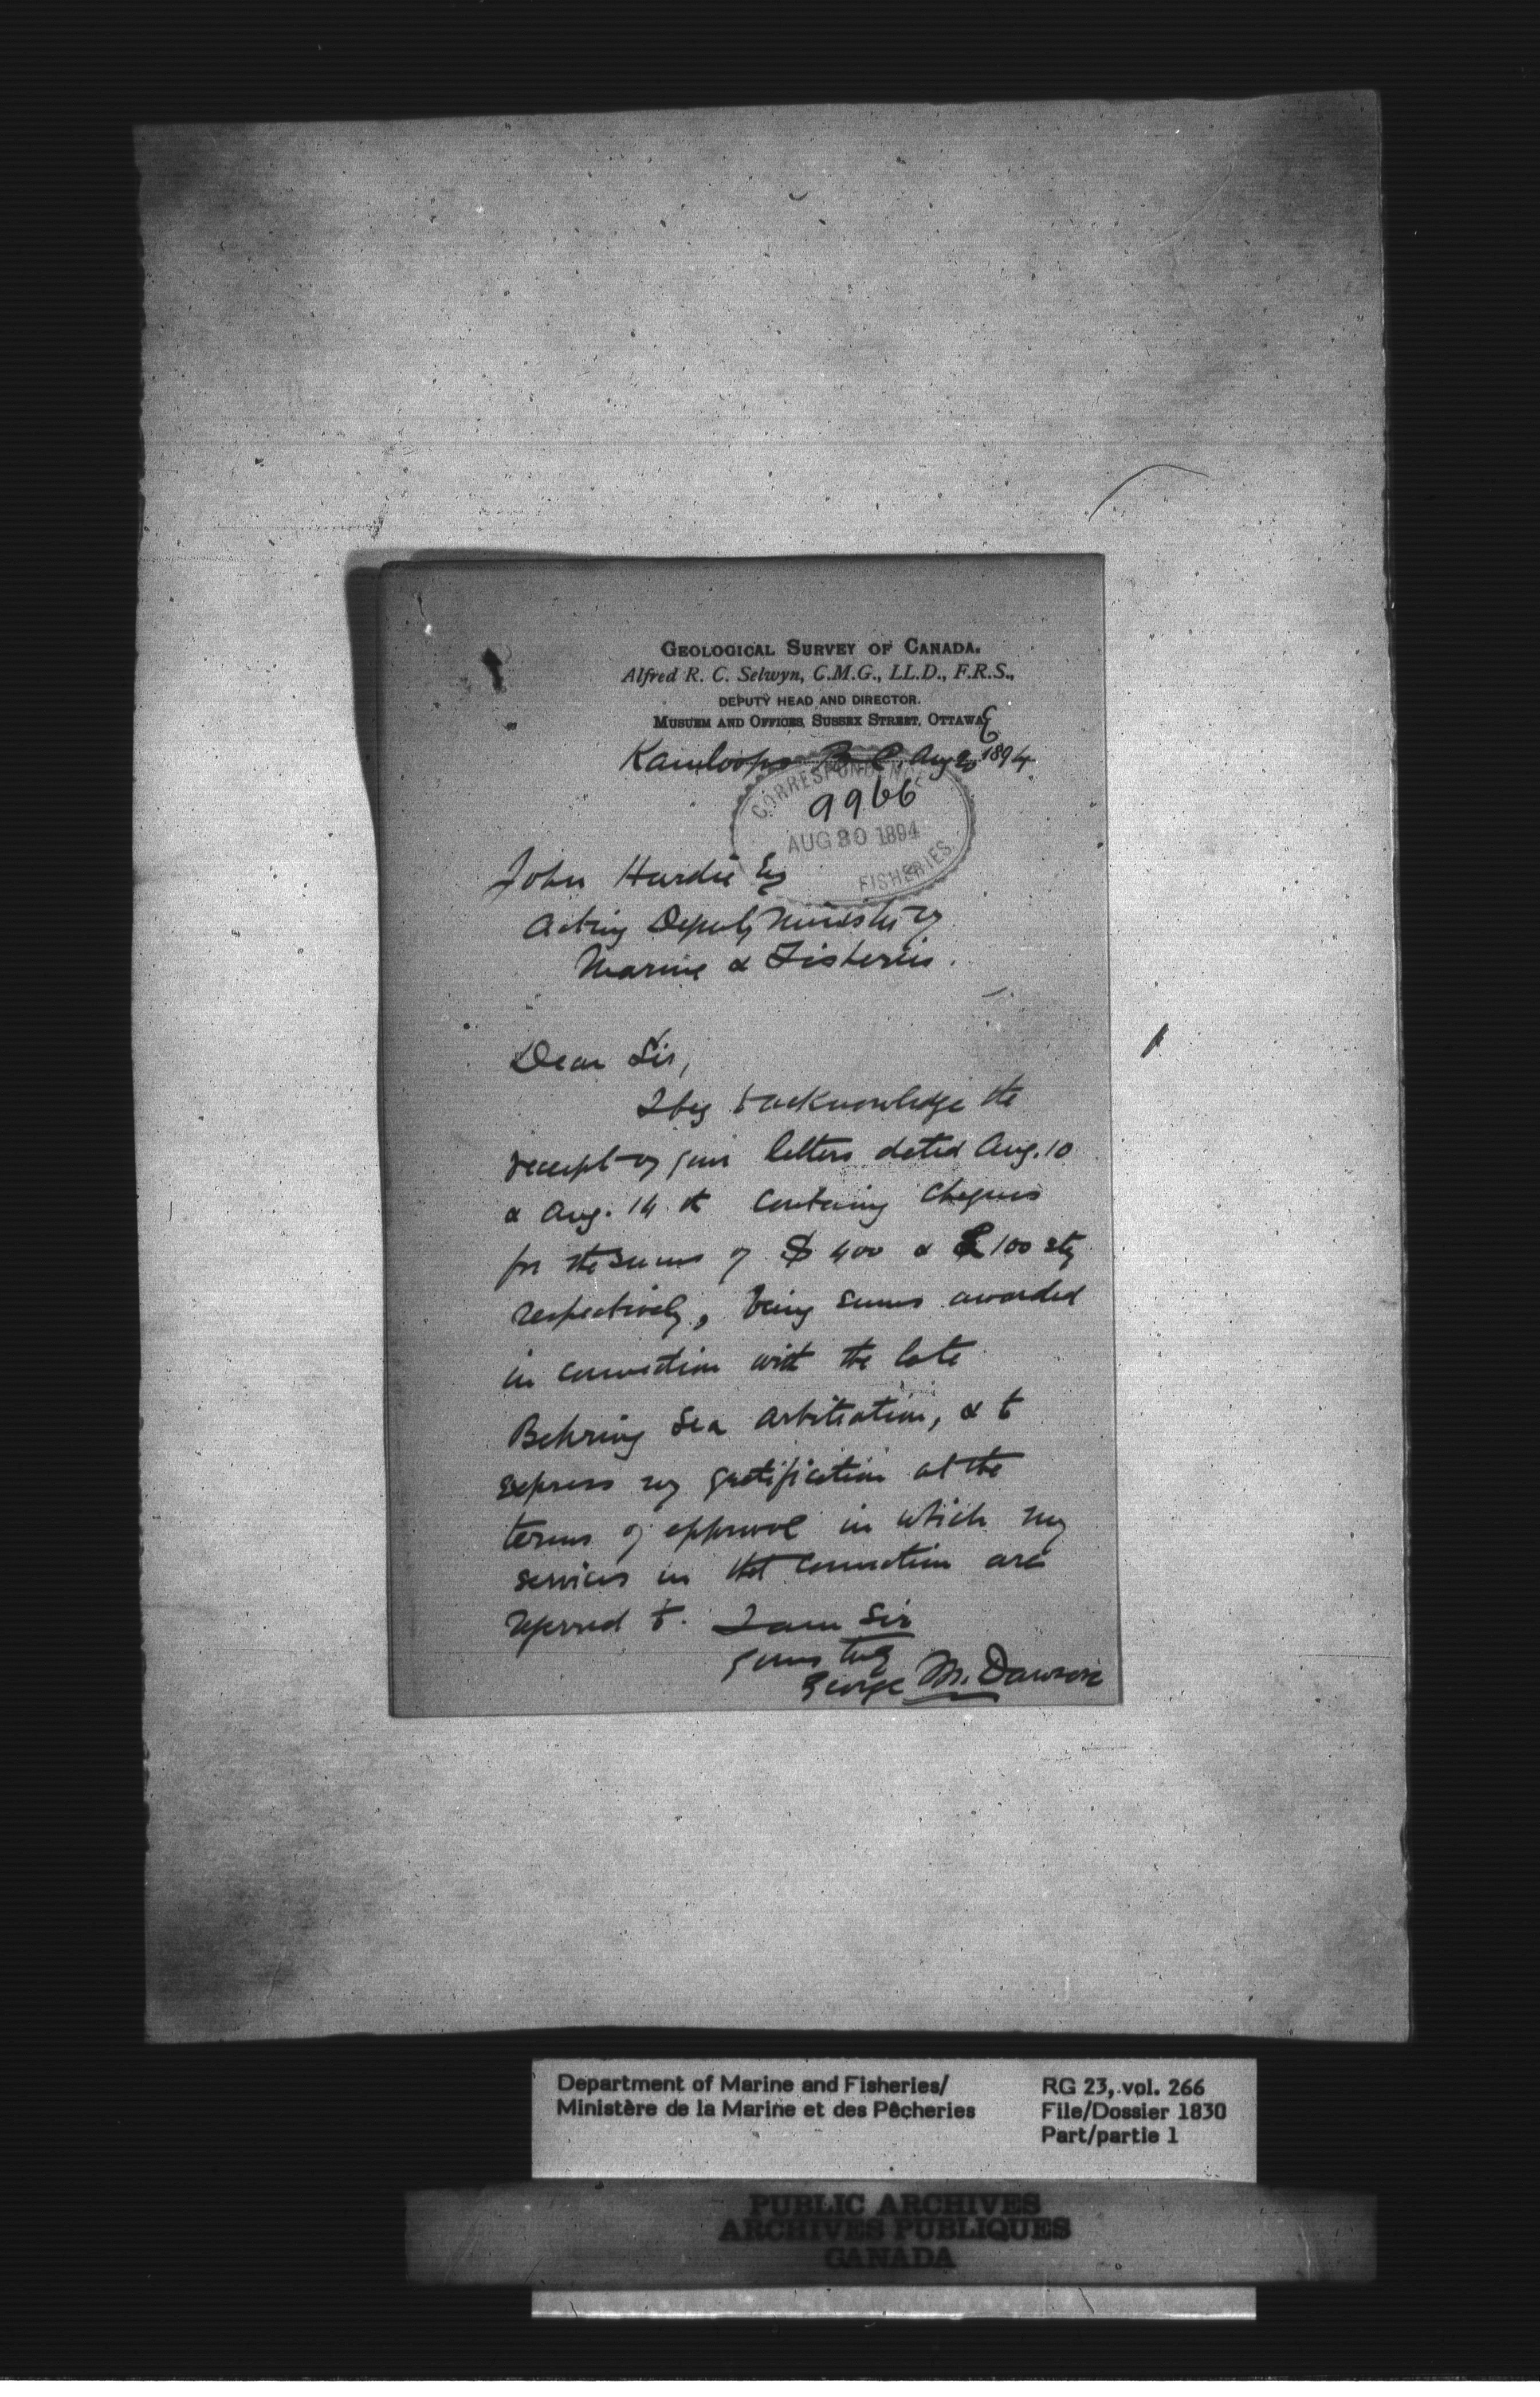 GEOLOGICAL SURVEY OF CANADA.
Alfred R. C. Selwyn, C.M.G., LL.D., F.R.S.,
DEPUTY HEAD AND DIRECTOR.
MUSUEM AND OFFICES, SUSSEX STREET, OTTAWA
Kamloops B. C. Aug 20 1894.
CORRESPONDENCE
9966
AUG 30 1894
FISHERIES
John Hardie Esq
Acting Deputy Minister of
Marine & Fisheries.
Dear Sir,
I beg to acknowledge the
receipt of your letters dated Aug. 10
& Aug. 14 th containing cheques
for the sums of $ 400 & £100 stg
respectively, being sums awarded
in connection with the late
Behring Sea Arbitration, & to
express my gratification at the
terms of approval in which my
services in that connection are
referred to. I am Sir
yours truly
George M. Dawson
Department of Marine and Fisheries/
Ministère de la Marine et des Pêcheries
RG 23, vol. 266
File/Dossier 1830
Part/partie 1
PUBLIC ARCHIVES
ARCHIVES PUBLIQUES
CANADA